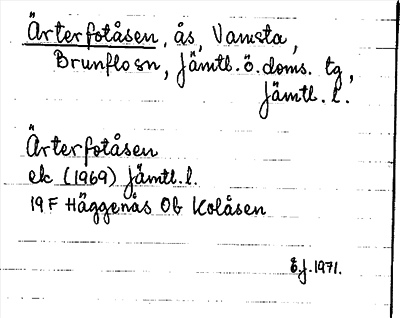 Ärterfotåsen, ås, Vamsta,
Brunflo sn, Jämtl. ö. doms. tg,
Jämtl. l.
Ärterfotåsen
ek (1969) Jämtl. l.
19 F Häggenås Ob Kolåsen
E.J. 1971.